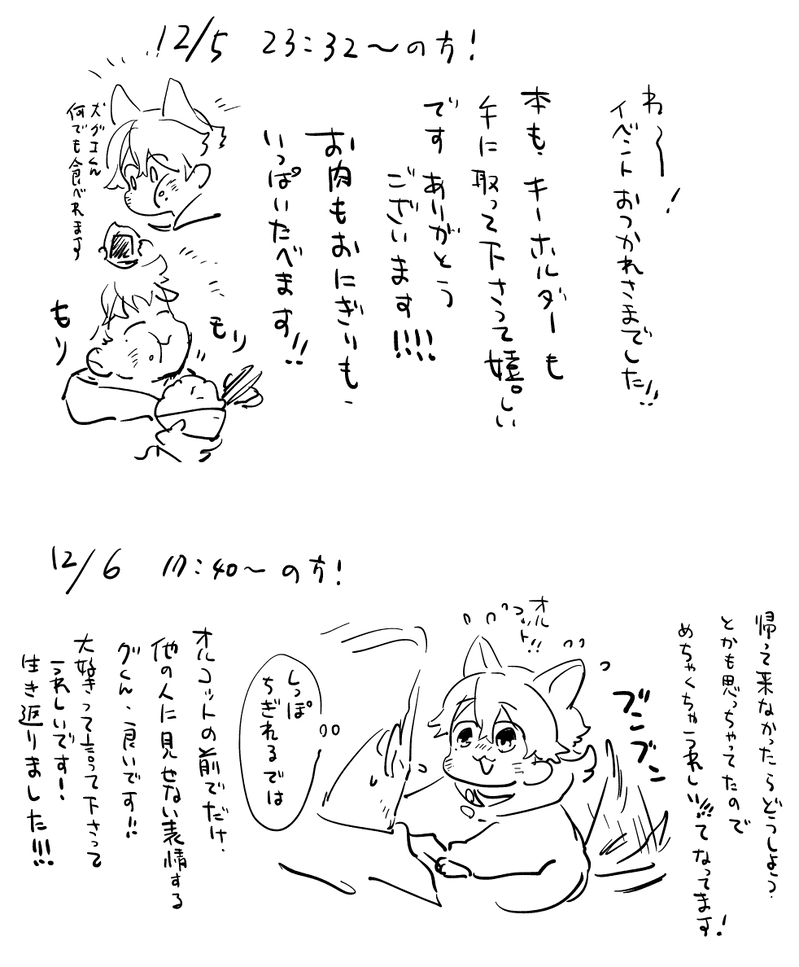 12/5 23:32〜の方!
ね〜!
イベントおつかれさまでした!!
本も、キーホルダーも
手に取って下さって嬉しい
です ありがとう
ございます!!!!
お肉もおにぎりも、
いっぱいたべます!!
犬グエくん
何でも食べれます
もり
もり
12/6 17:40〜の方!
帰って来なかったらどうしよう、
とかも思っちゃってたので
めちゃくちゃうれしい!!!てなってます!
オル
コット!!
ブンブン
しっぽ
ちぎれるでは
オルコットの前でだけ、
他の人に見せない表情する
グくん、良いです!!
大好きって言って下さって
うれしいです!
生き返りました!!!